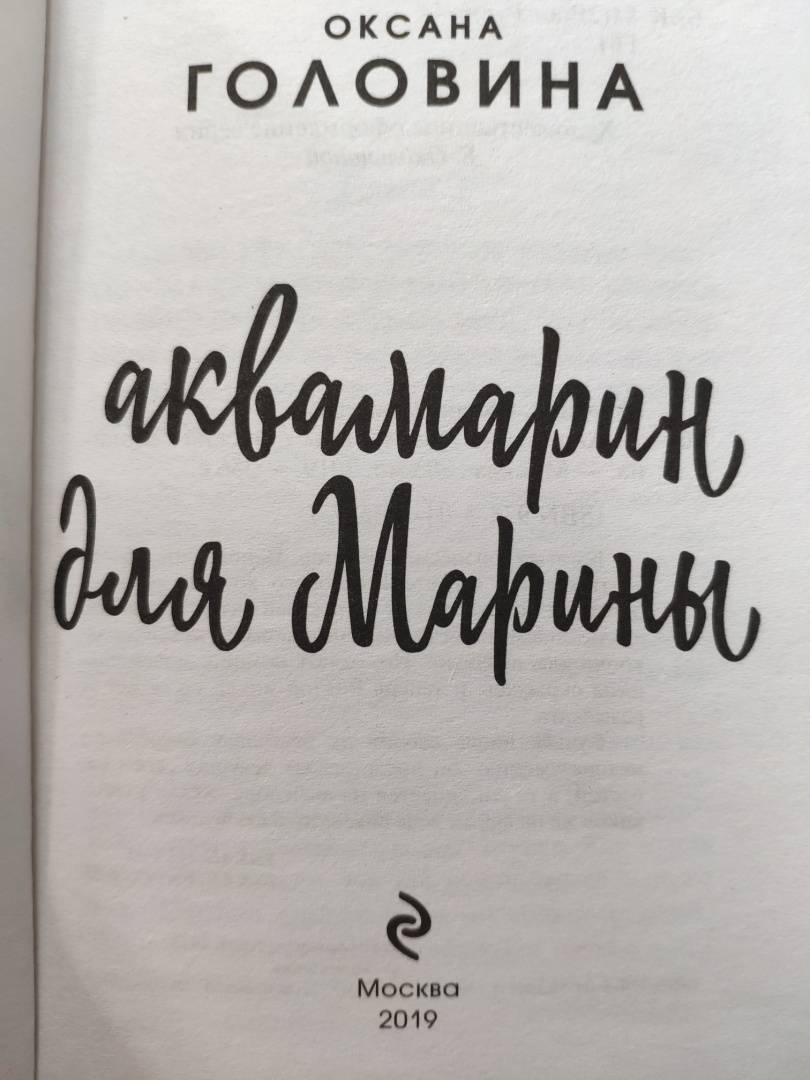 ОКСАНА
ГОЛОВИНА
аквамарин
для Марины
Москва
2019